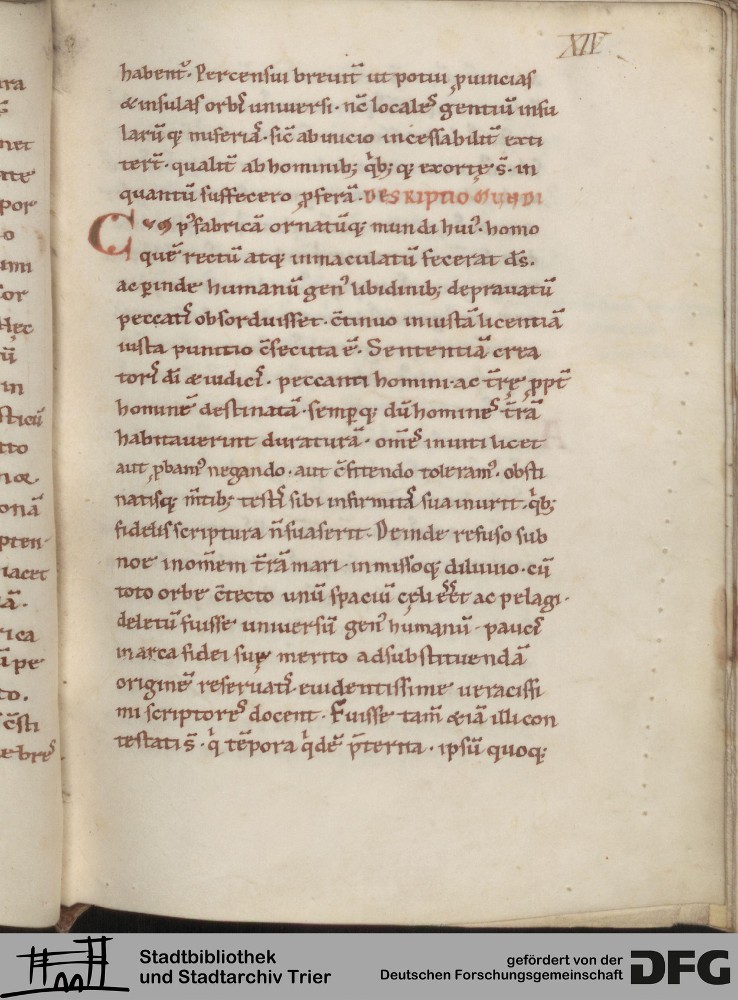 XIV
habent᷑. Percensui breuit᷑ ut potui ꝓuincias
&insulas orbis uniuersi. nc̄ locales gentiū insu
larūq; miserias̄. sic̄ ab inicio incessabilit᷑ exti
tert̄. qualit᷑ ab hominib; q̊b; q; exortę s̄. in
quantū suffecero ꝓferā. DESKRIPTIO MUNDI
Cū p᷒ fabricā ornatūq; mundi hui᷒. homo
quē rectū atq; inmaculatū fecerat ds̄.
ac ꝑinde humanū gen᷒ libidinib; deprauatū
peccatis obsorduisset. c̄tinuo iniustā licentiā
iusta punitio c̄secuta ē. Sententiā crea
toris dī & iudicis. peccanti homini. ac tr̄rę ꝓpt᷑
hominē destinatā. semꝑq; dū homines tr̄ā
habitauerint duraturā. om̄es inuiti licet
aut ꝓbam᷒ negando. aut c̄fitendo toleram᷒. obsti
natisq; m̄tib; testis sibi infirmitas̄ sua inurit. q̊b;
fidelis scriptura n̄ suaserit. Deinde refuso sub
noe in om̄em tr̄rā mari. inmissoq; diluuio. cū
toto orbe c̄tecto unū spaciū cęli ēēt ac pelagi.
deletū fuisse uniuersū gen᷒ humanū. paucis
in arca fidei suę merito adsubstituendā
originē reseruatis. euidentissime ueracissi
mi scriptores docent. Fuisse tam̄ & iā illi con
testati s̄. q̇ tēpora q̇dē p̄terita. ipsū quoq;
ra
net
por
o
or
Hęc
ū
in
sticū
tto
onā
pten
iacet
rica
ū pe
to.
c̄sti
ebres
Stadtbibliothek
und Stadtarchiv Trier
gefördert von der
Deutschen Forschungsgemeinschaft
DFG